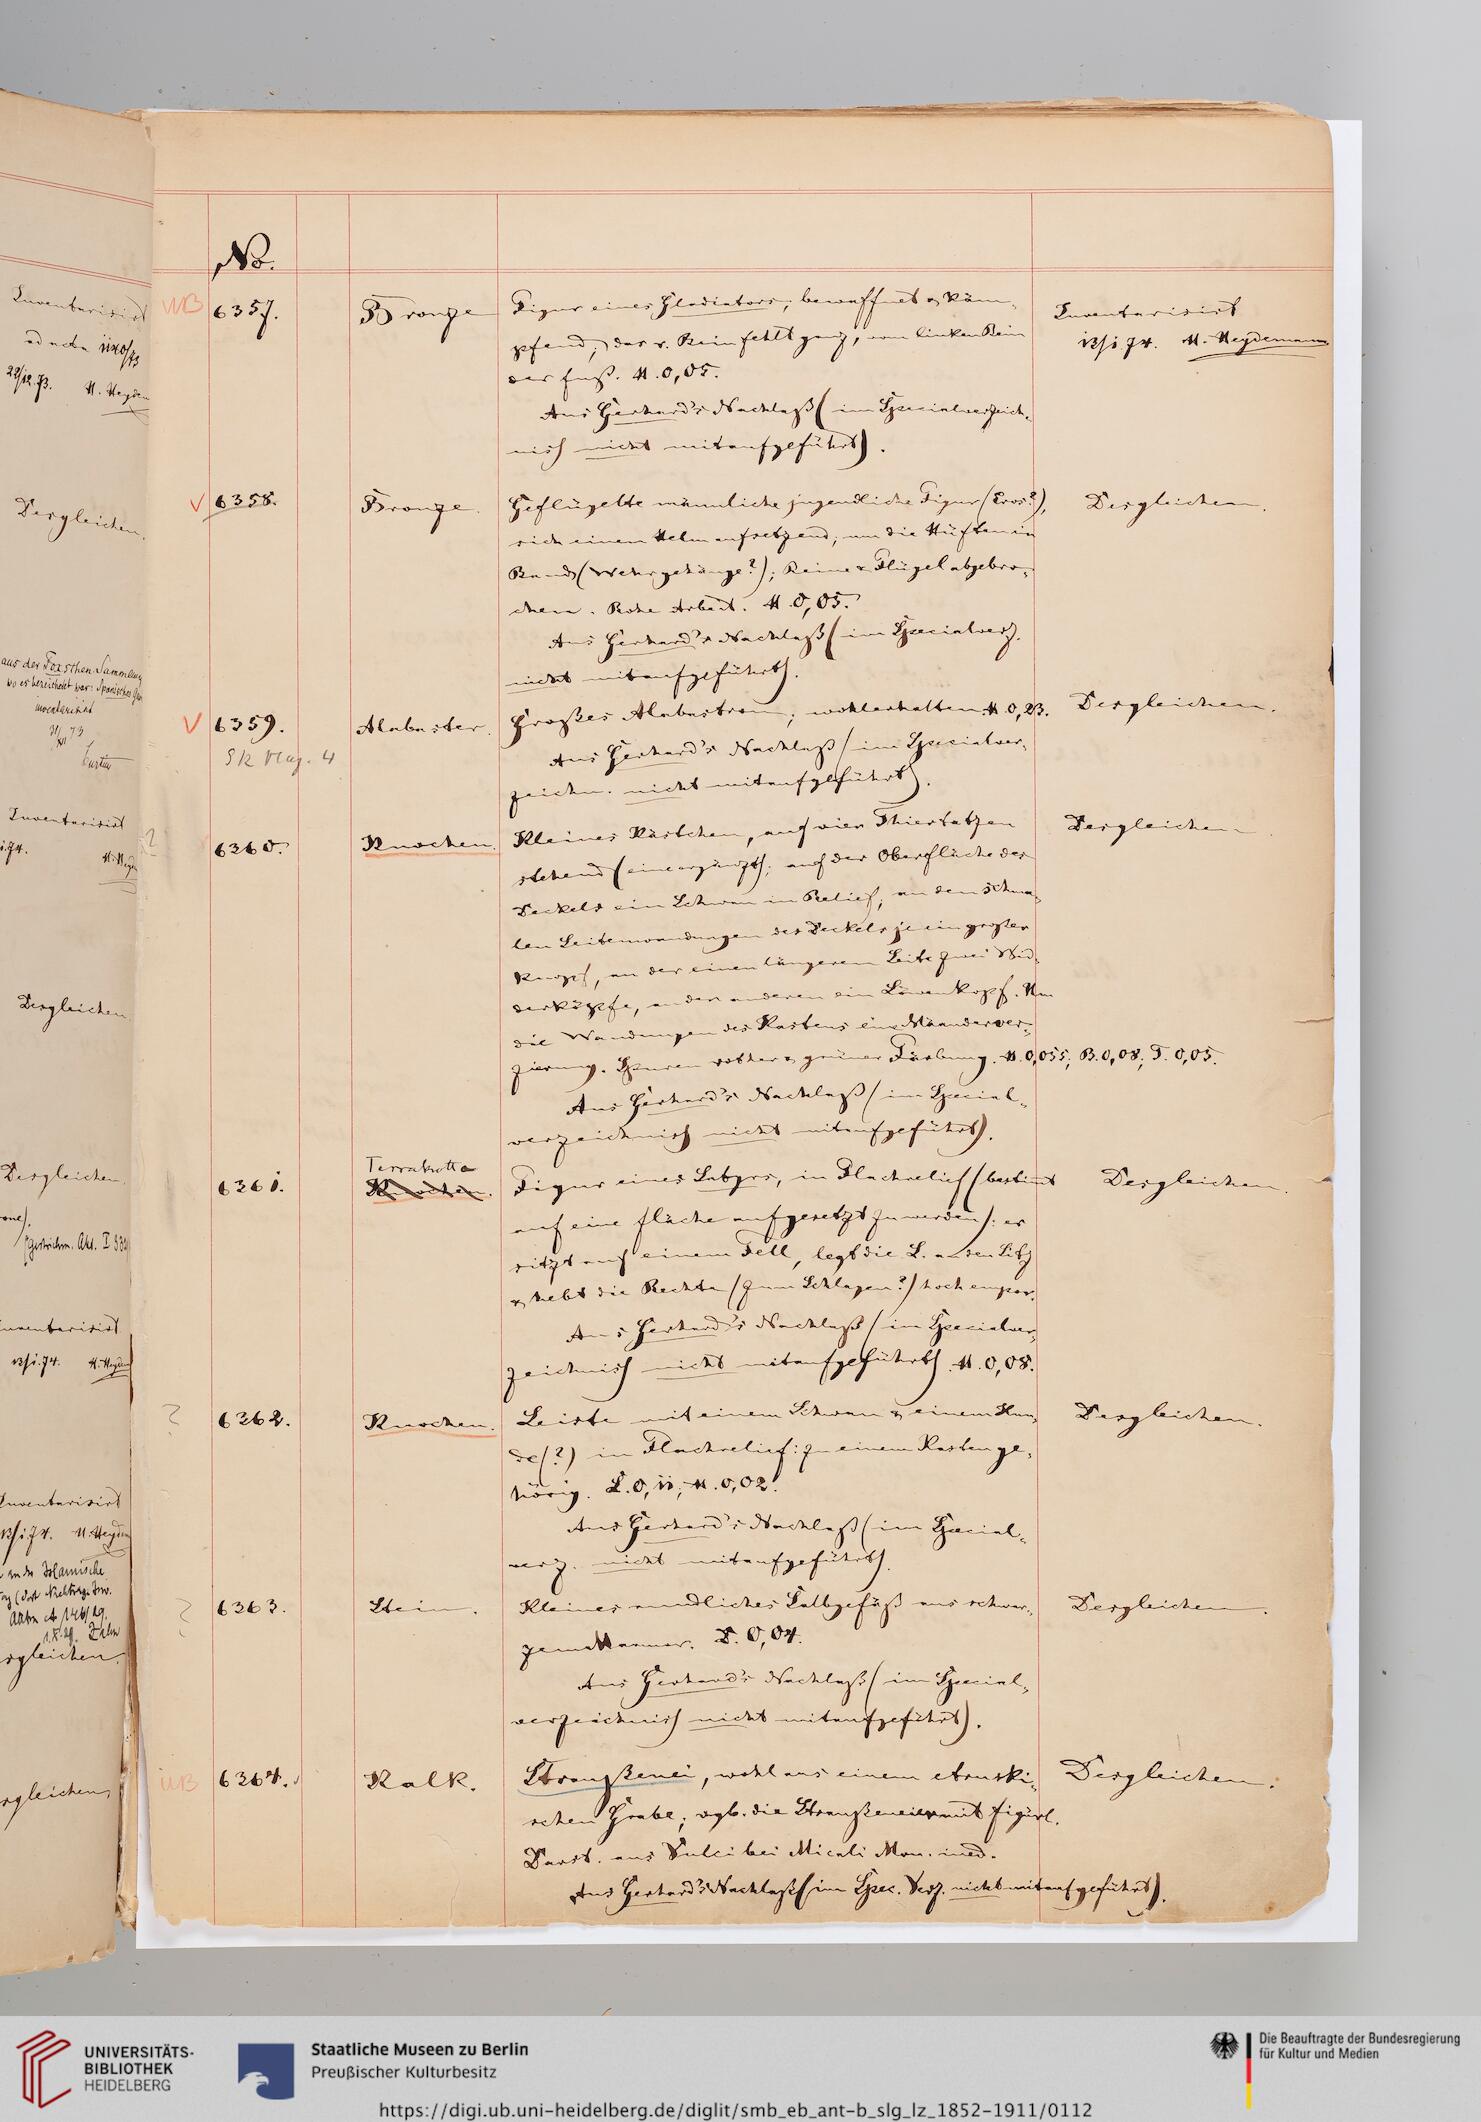 No.
6357.
Bronze
Figur eines Gladiators, bewaffnet & käm-
pfend; das r. Bein fehlt ganz, vom linken Bein
der Fuß. H. 0,05.
Aus Gerhard's Nachlaß (im Specialverzeich-
niß nicht mitaufgeführt).
Inventarisirt
13/1 74. H. Heydemann
6358.
Bronze.
Geflügelte männliche jugendliche Figur (Eros?),
sich einen Helm aufsetzend; um die Hüften ein
Band (Wehrgehänge?); Beine & Flügel abgebro-
chen. Rohe Arbeit. H. 0,05.
Aus Gerhard's Nachlaß (im Specialverz.
nicht mitaufgeführt).
Desgleichen.
6359.
Alabaster.
Großes Alabastron; wohlerhalten. H. 0,23.
Aus Gerhard's Nachlaß (im Specialver-
zeichn. nicht mitaufgeführt).
Desgleichen.
6360.
Knochen.
Kleines Kästchen, auf vier Thiertatzen
stehend (eine ergänzt); auf der Oberfläche des
Deckels ein Schwan in Relief, an den schma-
len Seitenwandungen des Deckels je ein großer
Knopf, an der einen längeren Seite zwei Wid-
derköpfe, an der anderen ein Löwenkopf. Um
die Wandungen des Kastens eine Mäanderver-
zierung. Spuren rother & grüner Färbung. H. 0,055; B. 0,08; T. 0,05.
Aus Gerhard's Nachlaß (im Special-
verzeichniß nicht mitaufgeführt).
Desgleichen
6361.
Terrakotta
Knochen.
Figur eines Satyrs, in Flachrelief (bestimt
auf eine Fläche aufgesetzt zu werden): er
sitzt auf einem Fell, legt die L. an den Sitz
& hebt die Rechte (zum Schlagen?) hoch empor.
Aus Gerhard's Nachlaß (im Specialver-
zeichniß nicht mitaufgeführt). H. 0,08.
Desgleichen.
6362.
Knochen.
Leiste mit einem Schwan & einem Hun-
de (?) in Flachrelief: zu einem Kasten ge-
hörig. L. 0,11; H. 0,02.
Aus Gerhard's Nachlaß (im Special-
verz. nicht mitaufgeführt).
Desgleichen.
6363.
Stein.
Kleines rundliches Salbgefäß aus schwar-
zem Marmor. D. 0,04.
Aus Gerhard's Nachlaß (im Special-
verzeichniß nicht mitaufgeführt).
Desgleichen.
6364.
Kalk.
Straußenei, wohl aus einem etruski-
schen Grabe; vgl. die Straußeneier mit figürl.
Darst. aus Vulci bei Micali Mon. ined.
Aus Gerhard's Nachlaß (im Spec. Verz. nicht mitaufgeführt).
Desgleichen.
UNIVERSITÄTS-
BIBLIOTHEK
HEIDELBERG
Staatliche Museen zu Berlin
Preußischer Kulturbesitz
Die Beauftragte der Bundesregierung
für Kultur und Medien
https://digi.ub.uni-heidelberg.de/diglit/smb_eb_ant-b_slg_lz_1852-1911/0112